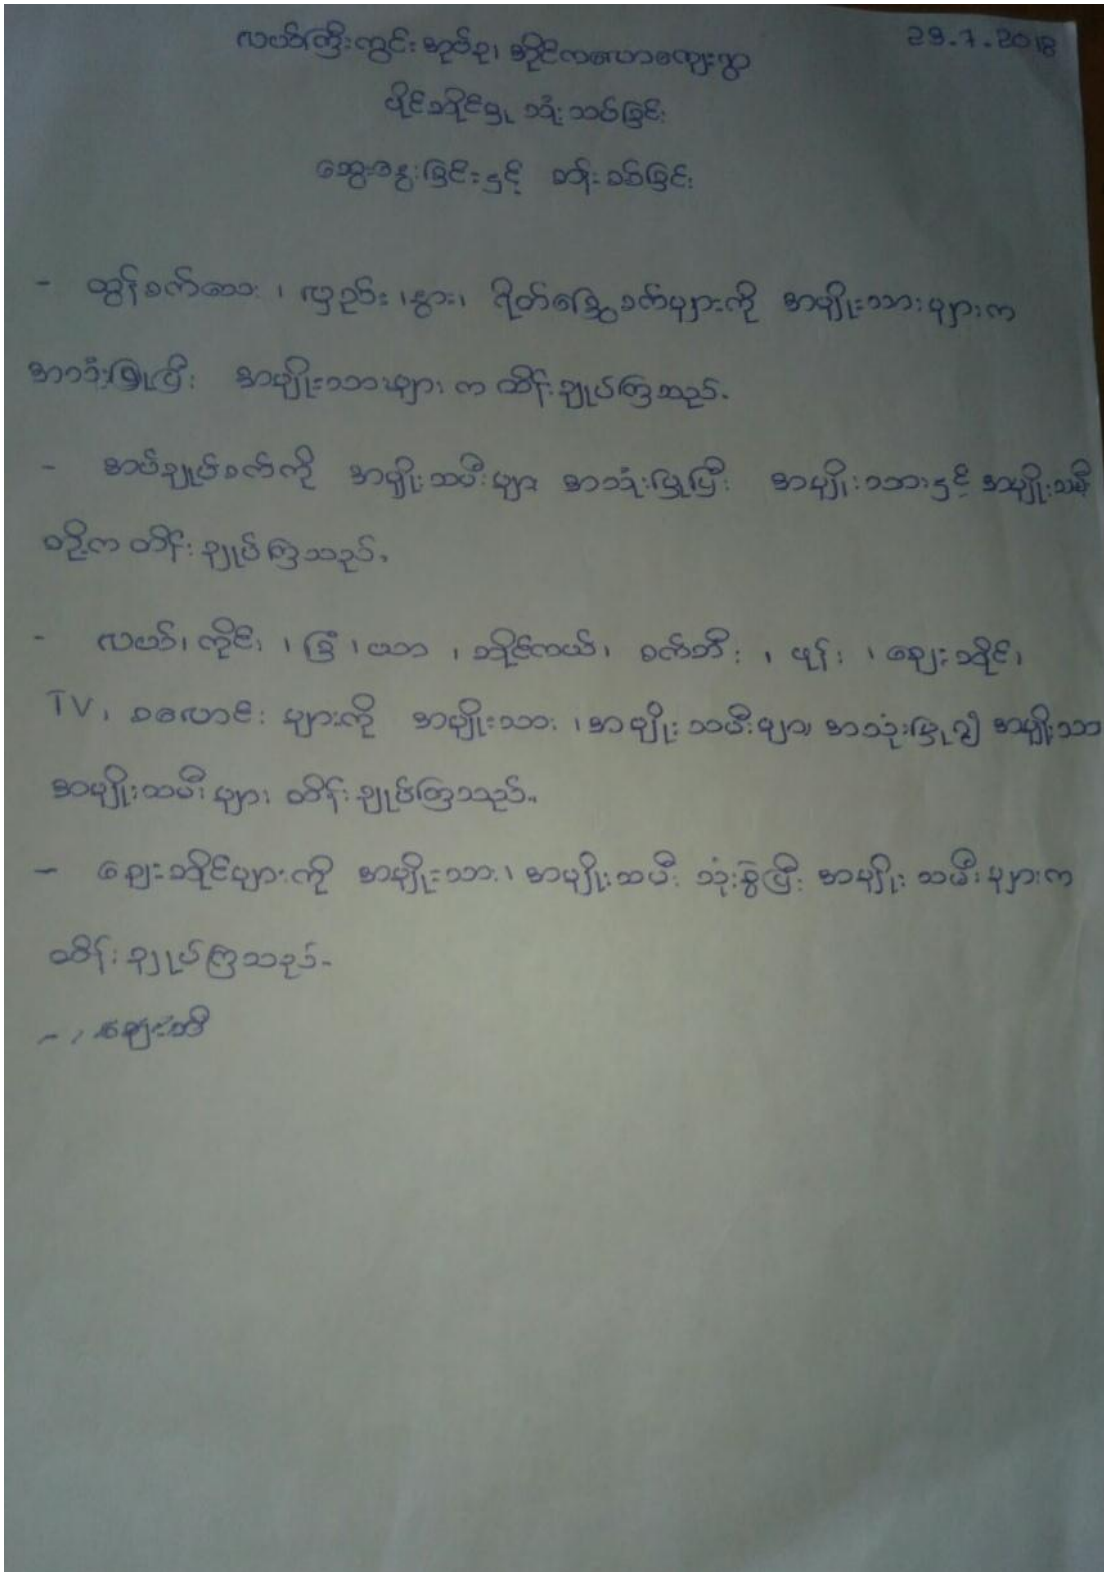 လယ်ကြီးကွင်းအုပ်စု၊ အိုင်ကလောကျေးရွာ 29.7.2018
ပိုင်ဆိုင်မှု သုံးသပ်ခြင်း
ဆွေးနွေးခြင်းနှင့် စမ်းစစ်ခြင်း
- ထွန်စက်လေး ၊ လှည်း ၊နွား၊ ရိတ်ခြွေစက်များကို အမျိုးသားများက
အသုံးပြုပြီး အမျိုးသားများ က ထိန်းချုပ်ကြသည်.
- အပ်ချုပ်စက်ကို အမျိုးသမီးများ အသုံးပြုပြီး အမျိုးသားနှင့် အမျိုးသမီး
တို့က ထိန်းချုပ်ကြသည်.
- လယ်၊ ကိုင်း ၊ ခြံ ၊ ယာ ၊ ဆိုင်ကယ်၊ စက်ဘီး ၊ ဖုန်း ၊ ဈေးဆိုင်၊
TV ၊ စလောင်း များကို အမျိုးသား ၊အမျိုးသမီးများ အသုံးပြု၍ အမျိုးသား
အမျိုးသမီးများ ထိန်းချုပ်ကြသည်..
- ဈေးဆိုင်များကို အမျိုးသား၊ အမျိုးသမီး သုံးစွဲပြီး အမျိုးသမီးများက
ထိန်းချုပ်ကြသည်-